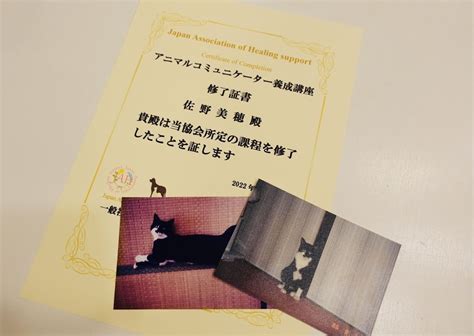 Japan Association of Healing support
Certificate of Completion
アニマルコミュニケーター養成講座
修了証書
佐野美穂殿
貴殿は当協会所定の課程を修了
したことを証します
2022年
一般